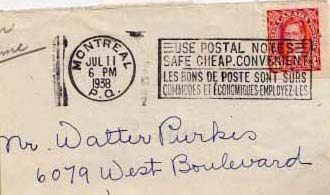 MONTREAL
JUL 11
6 PM
1938
P.Q.
USE POSTAL NOTES
SAFE CHEAP. CONVENIENT
LES BONS DE POSTE SONT SURS
COMMODES ET ÉCONOMIQUES-EMPLOYEZ-LES
Mr. Walter Purkis
6079 West Boulevard